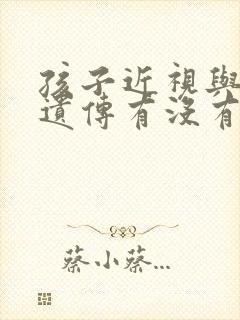 孩子近視與
遺傳有沒有
蔡小蔡...